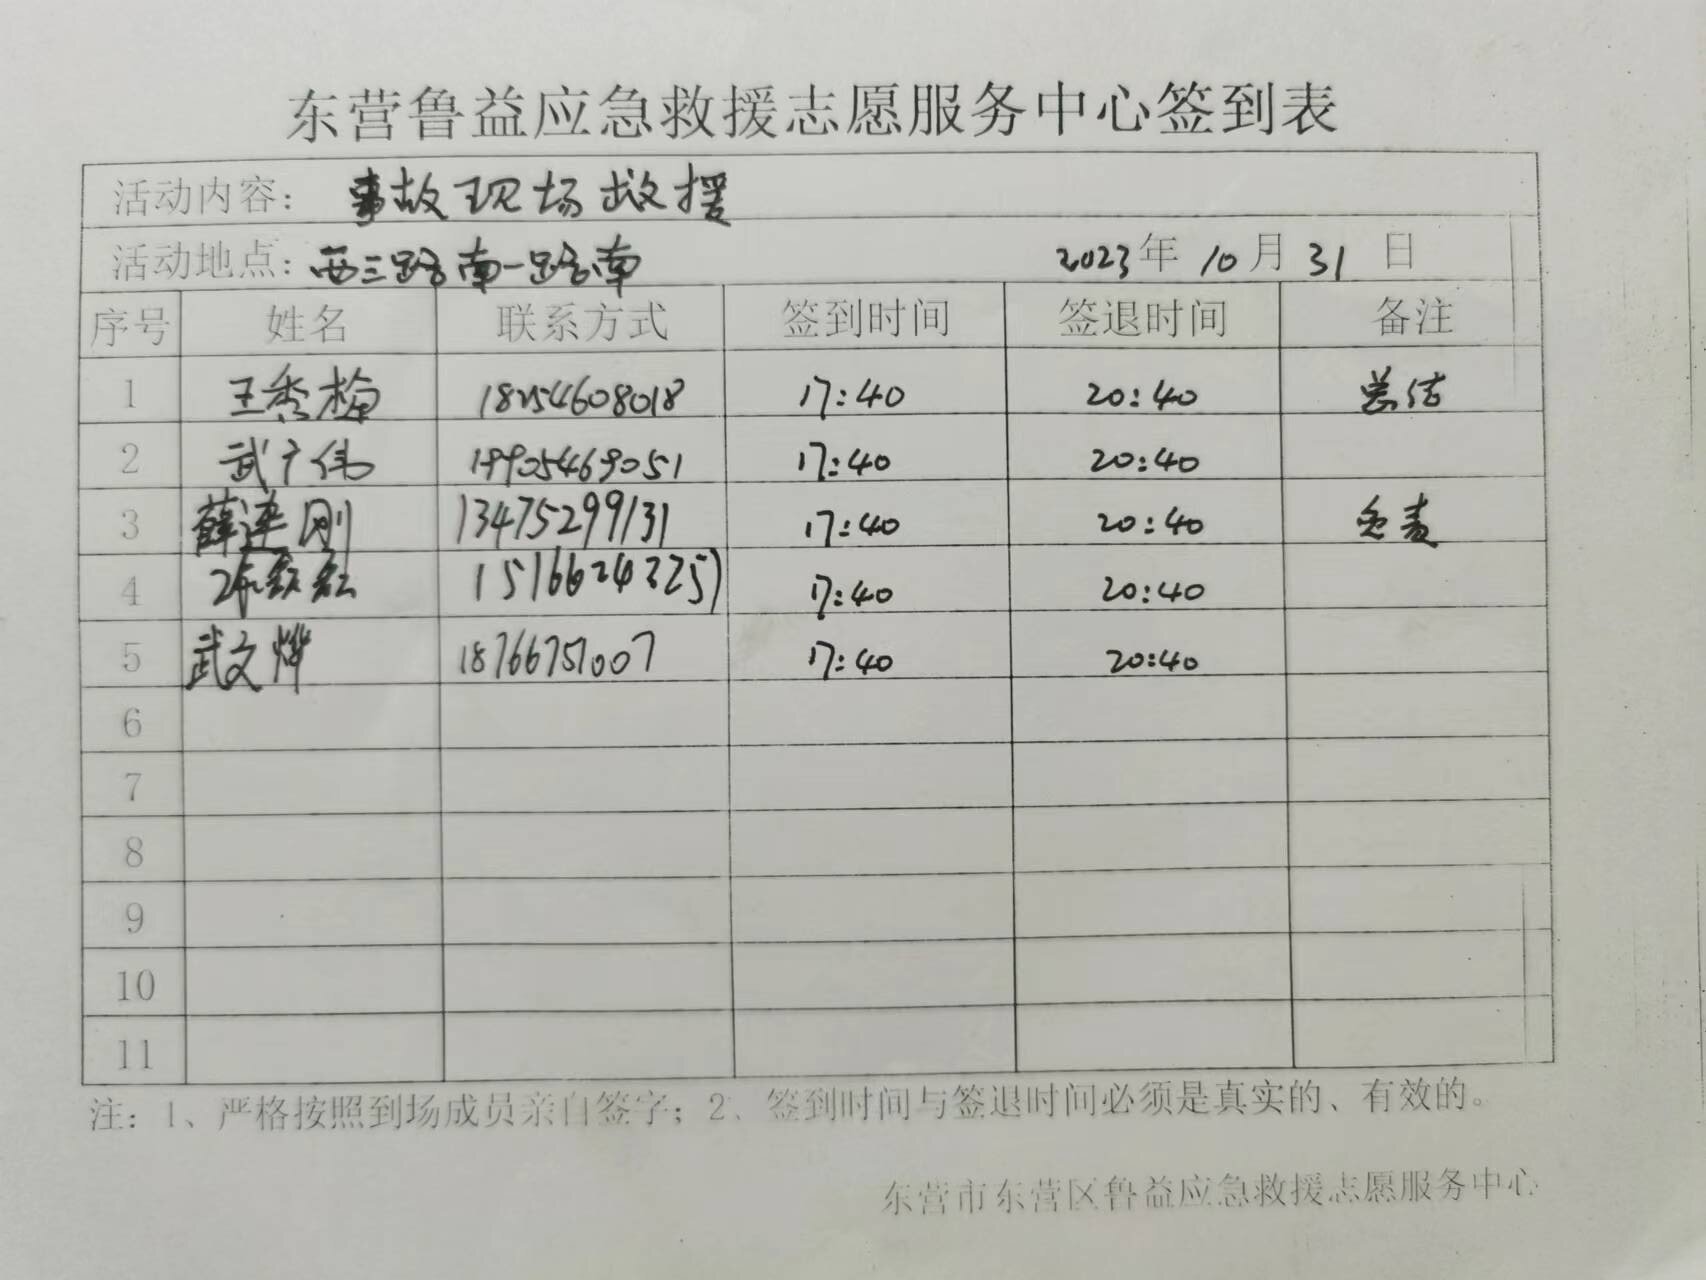 东营鲁益应急救援志愿服务中心签到表
活动内容： 事故现场救援
活动地点：西三路南一路南 2023年 10月 31 日
序号 姓名 联系方式 签到时间 签退时间 备注
1 王秀梅 18254608018 17:40 20:40 总结
2 武广伟 19905469051 17:40 20:40
3 薛连刚 13475299131 17:40 20:40 负责
4 17:40 20:40
5 武文烨 18766751007 17:40 20:40
6
7
8
9
10
11
注：1、严格按照到场成员亲自签字；2、签到时间与签退时间必须是真实的、有效的。
东营市东营区鲁益应急救援志愿服务中心